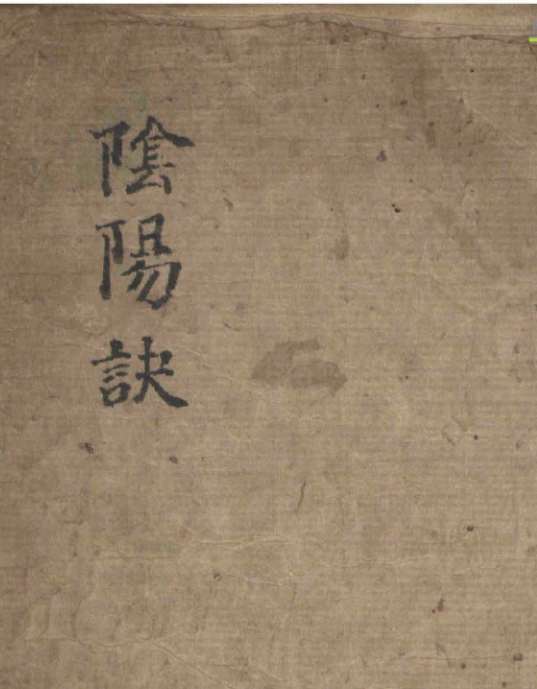 陰陽訣